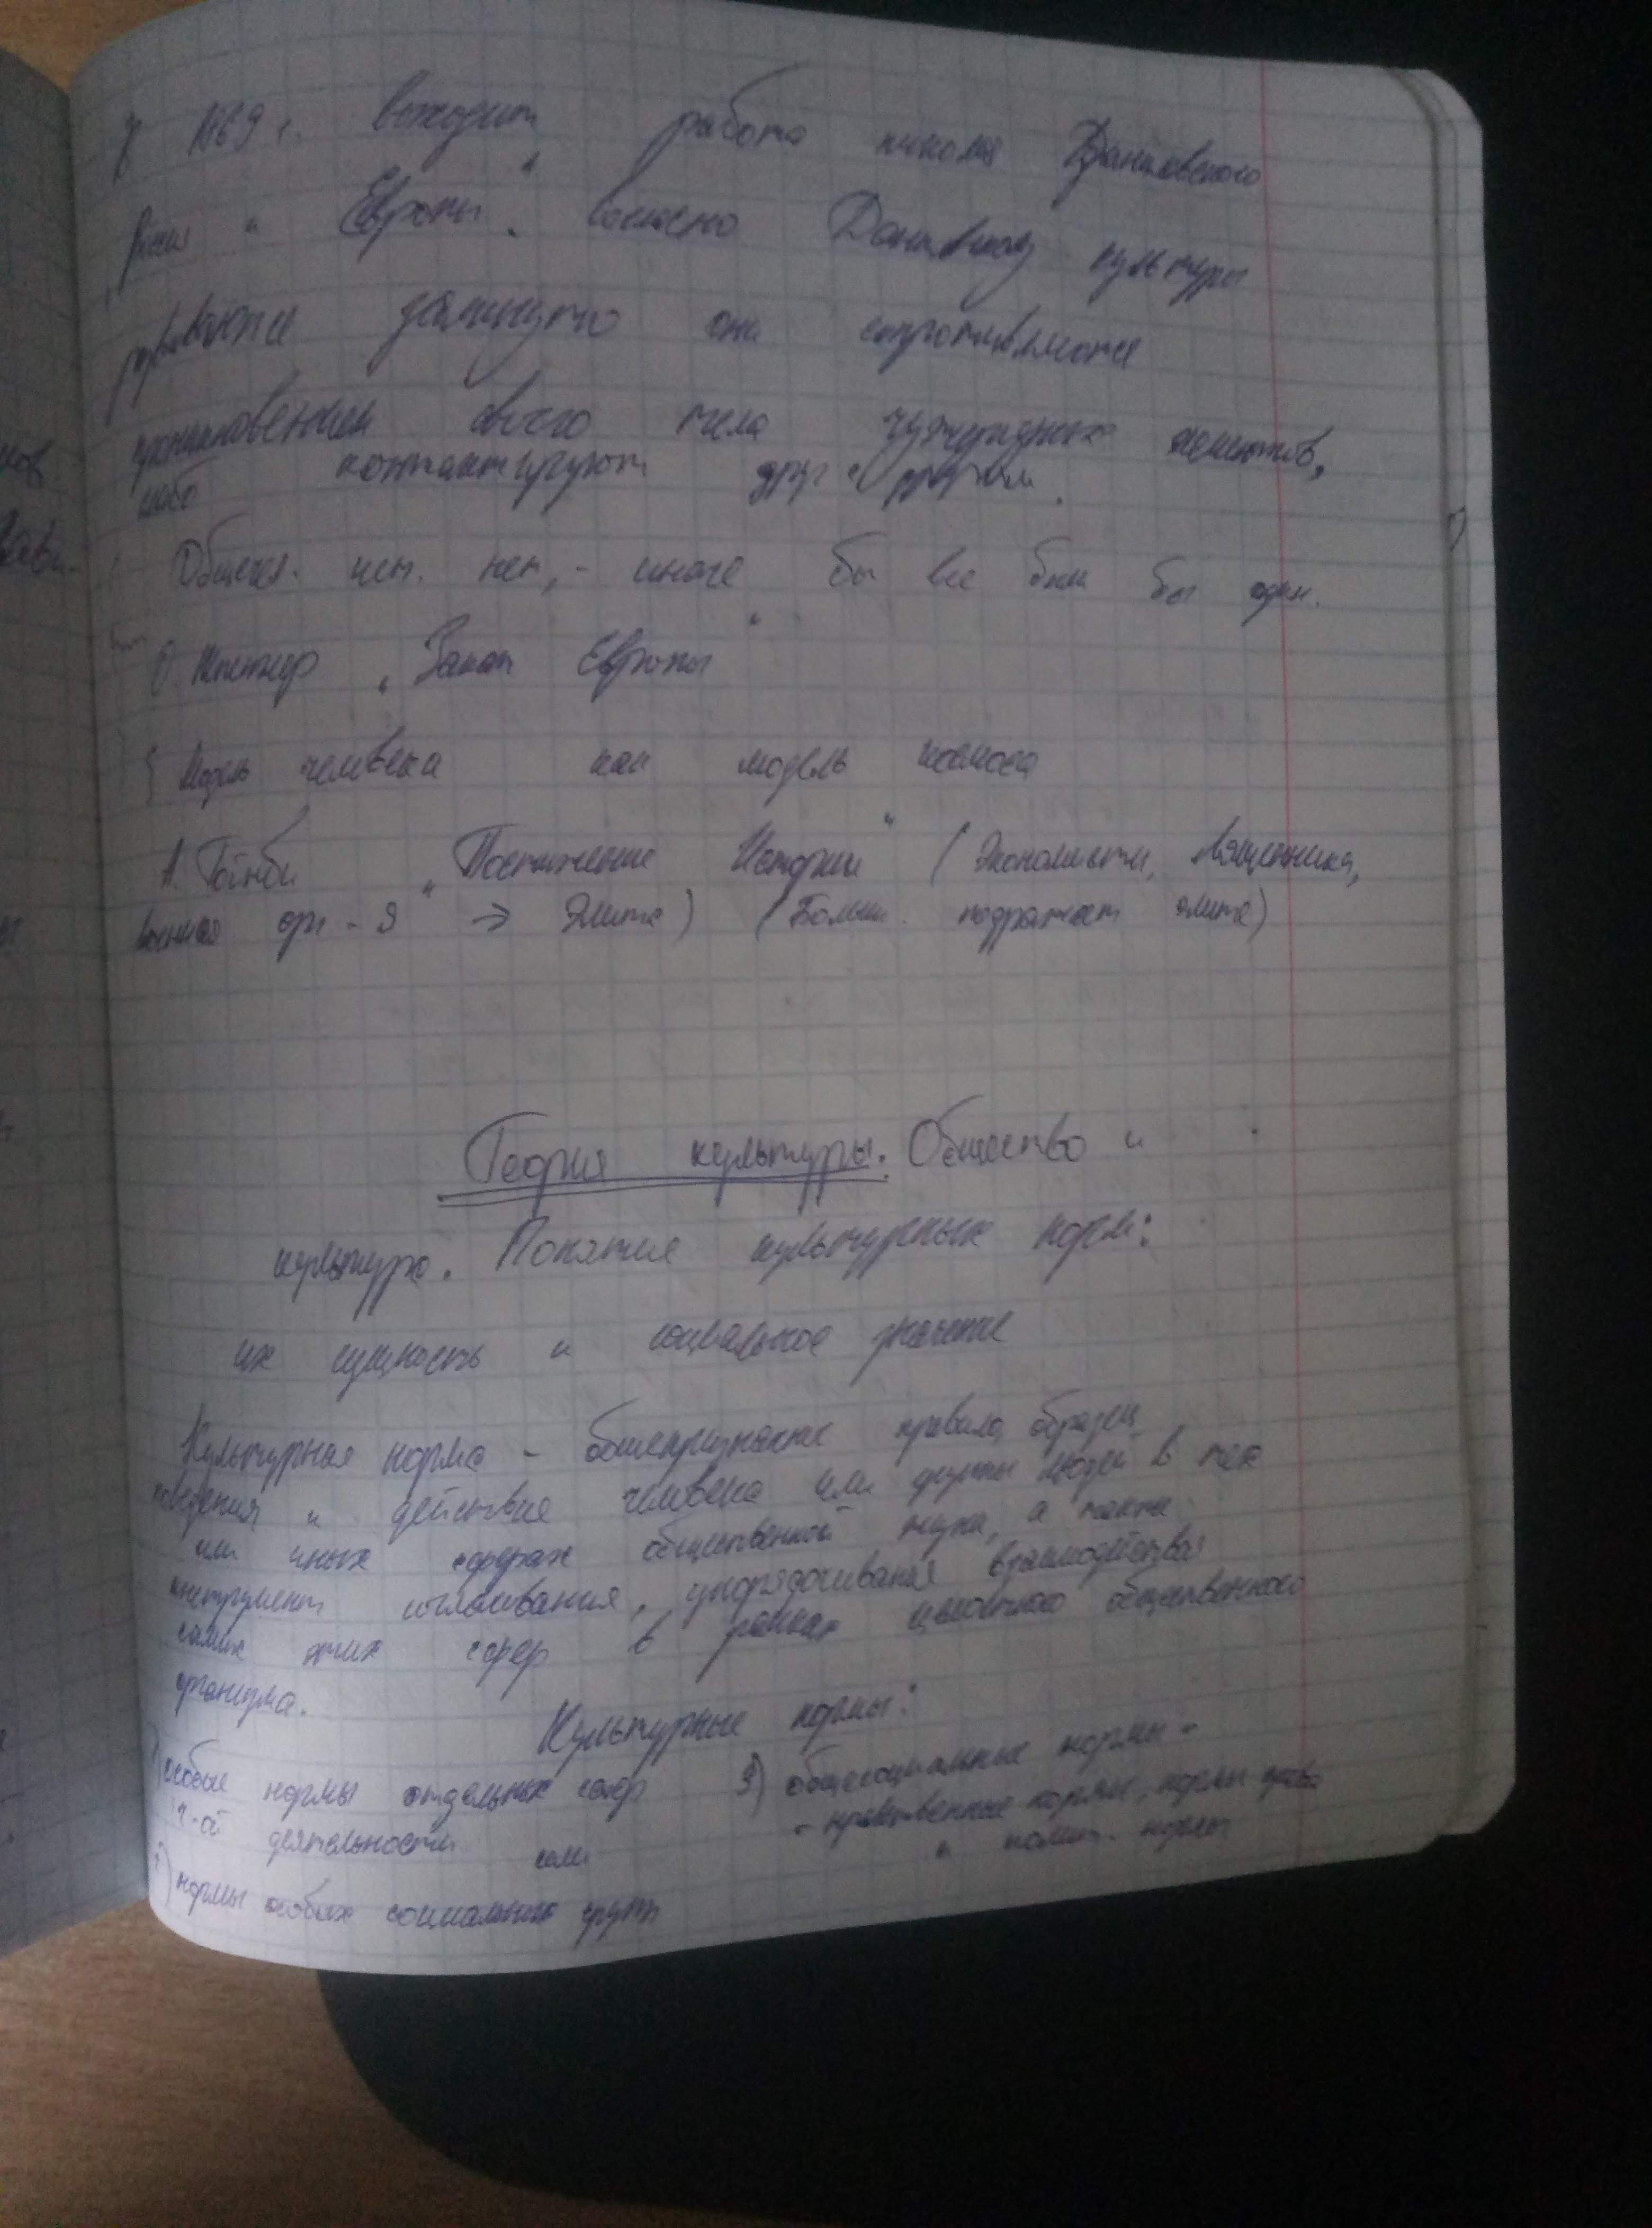 В 1869 г. выходит работа николая Данилевского
"Россия и Европа". Согласно Данилевскому культуры
развиваются замкнуто они сопротивляются
проникновением своего тела чужеродных элементов,
слабо контактируют друг с другом.
Общечел. ист. нет, - иначе бы все были бы один.
О. Шпенглер "Закат Европы"
Модель человека как модель космоса
А. Тойнби "Постижение Истории" (Экономисты, священника,
военная орг-я → Элита) (Больш. подражает элите)
Теория культуры. Общество и
культура. Понятие культурных норм:
их сущность и социальное значение
Культурная норма - общепризнанные правила, образец
поведения и действие человека или группы людей в тех
или иных сферах общественной жизни, а также
инструмент согласования, упорядочивания взаимодействия
самих этих сфер в рамках целостного общественного
организма.
Культурные нормы:
1) особые нормы отдельных сфер
ч-ой деятельности
2) нормы особых социальных групп
3) общесоциальные нормы -
- нравственные нормы, нормы права
и полит. нормы